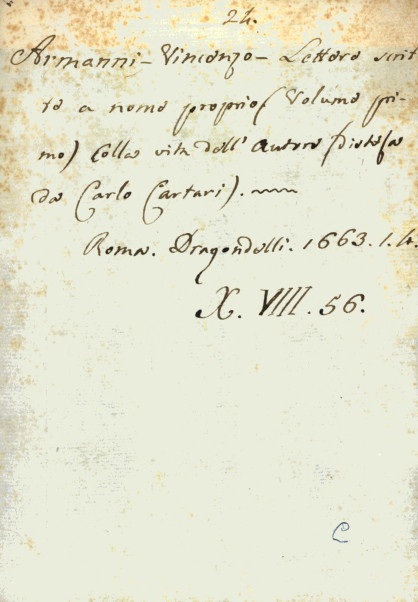 24.
Armanni - Vincenzo - Lettere scrit-
te a nome proprio (Volume pri-
mo) Colla vita dell' Autore (distesa
da Carlo Cartari).
Roma. Dragondelli. 1663. 1. 4.
X. VIII. 56.
C